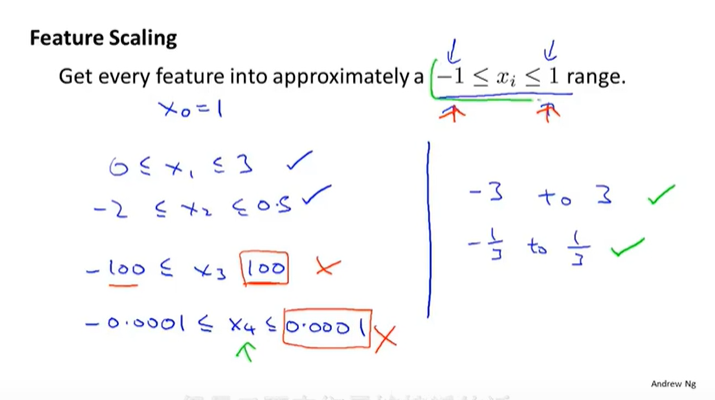 Feature Scaling
Get every feature into approximately a -1 ≤ xᵢ ≤ 1 range.
x₀ = 1
0 ≤ x₁ ≤ 3 ✓
-2 ≤ x₂ ≤ 0.5 ✓
-100 ≤ x₃ 100 ✗
-0.0001 ≤ x₄ ≤ 0.0001 ✗
-3 to 3 ✓
-1/3 to 1/3 ✓
Andrew Ng